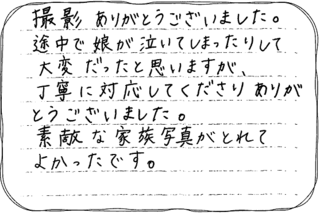 撮影 ありがとうございました。
途中で娘が泣いてしまったりして
大変だったと思いますが、
丁寧に対応してくださり ありが
とうございました。
素敵な家族写真がとれて
よかったです。